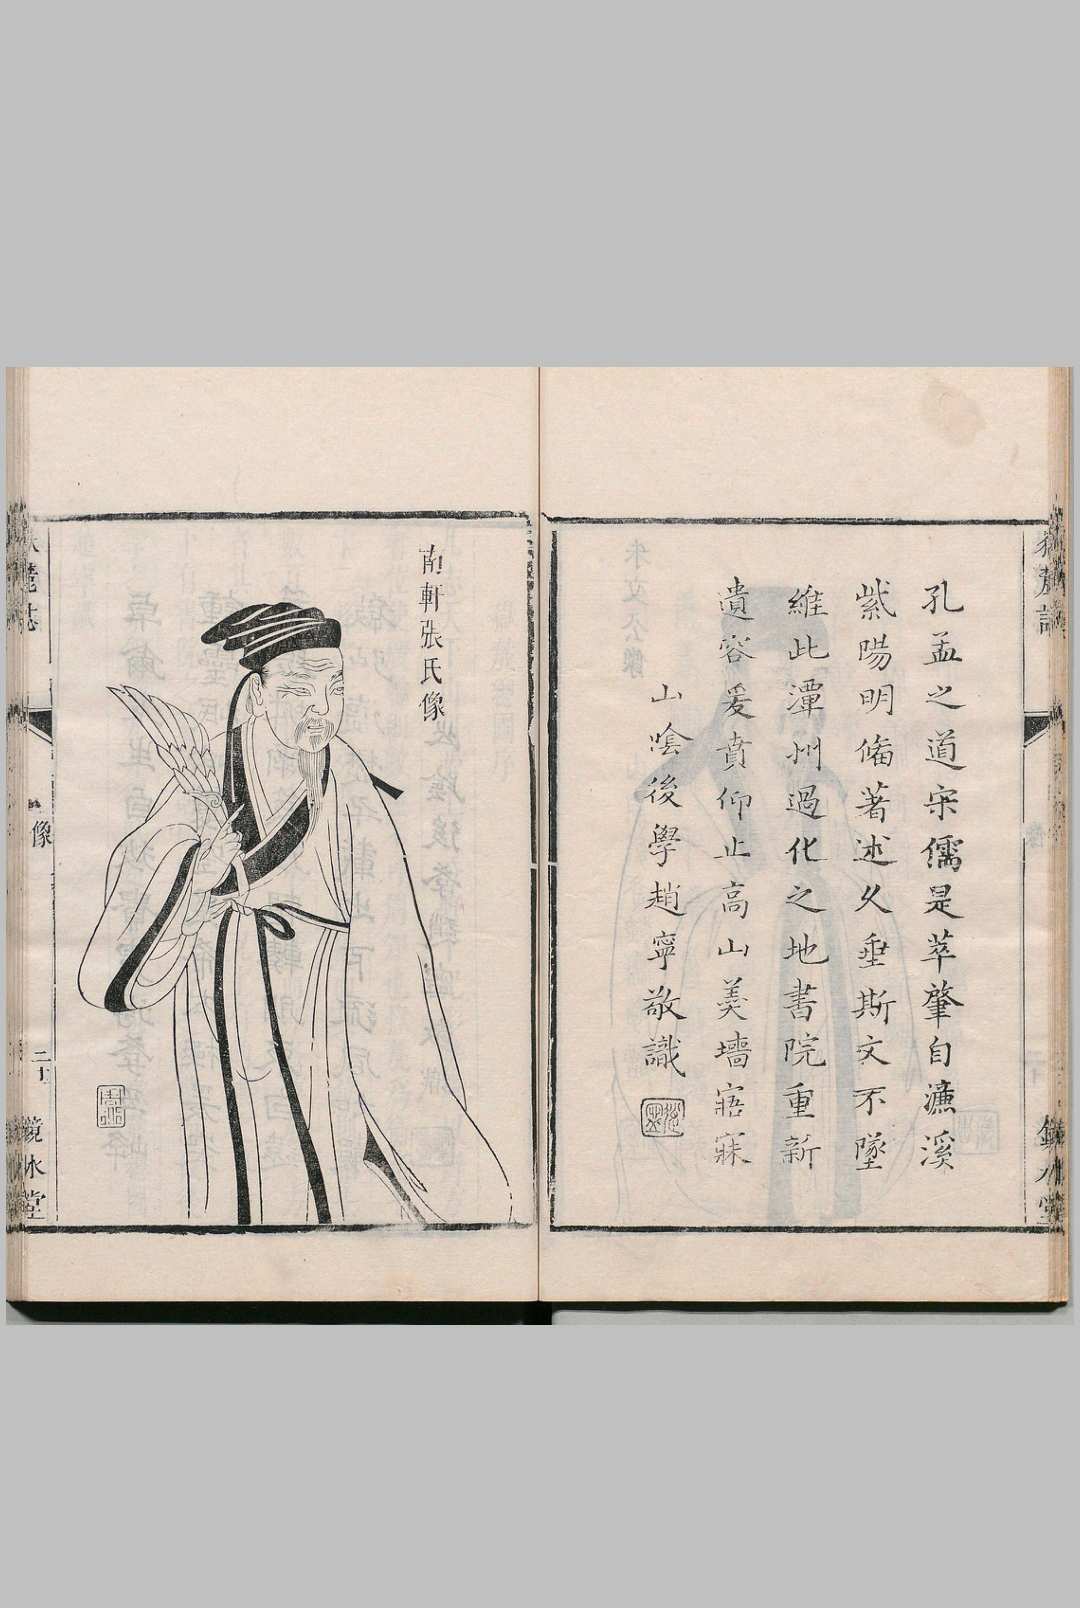 孔孟之道宋儒是萃肇自濂溪
紫陽明備著述久垂斯文不墜
維此潭州過化之地書院重新
遺容爰賁仰止高山羹墻寤寐
山陰後學趙寧敬識
南軒張氏像
像
二十
鏡水堂